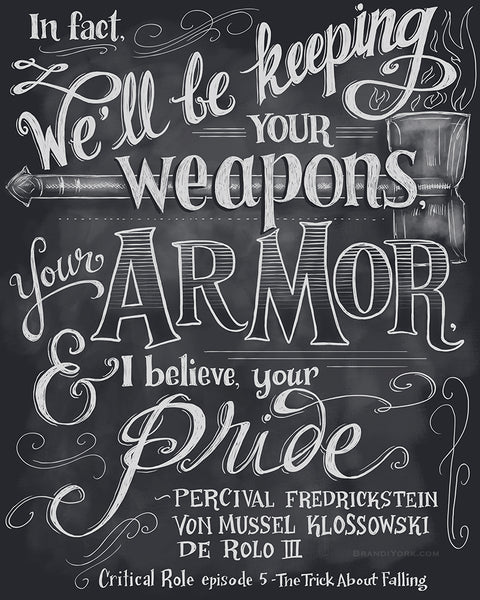 In fact,
We'll be keeping
YOUR
weapons,
your
ARMOR,
& I believe, your
Pride
~PERCIVAL FREDRICKSTEIN
VON MUSSEL KLOSSOWSKI
DE ROLO III
BRANDIYORK.COM
Critical Role episode 5 -The Trick About Falling